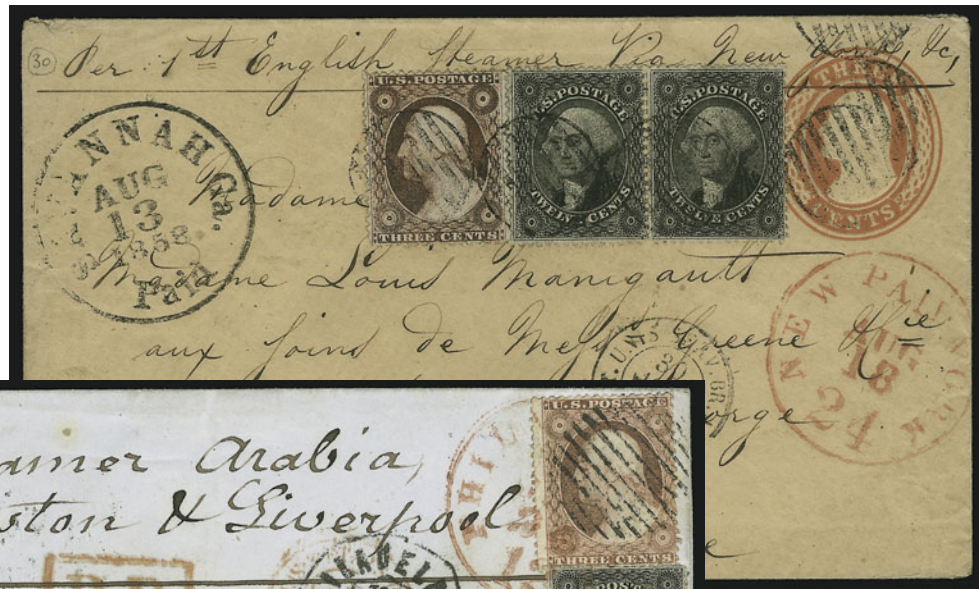 30
Per 1st English Steamer Via New York, &c,
THREE CENTS
U.S. POSTAGE
THREE CENTS
U.S. POSTAGE
TWELVE CENTS
U.S. POSTAGE
TWELVE CENTS
SAVANNAH Ga.
AUG
13
1858
Paid
Madame
Madame Louis Manigault
aux soins de Mess Greene & Cie
NEW PAID YORK
AUG
18
24
orge
amer Arabia,
ston & Liverpool
PHIL
U.S. POSTAGE
THREE CENTS